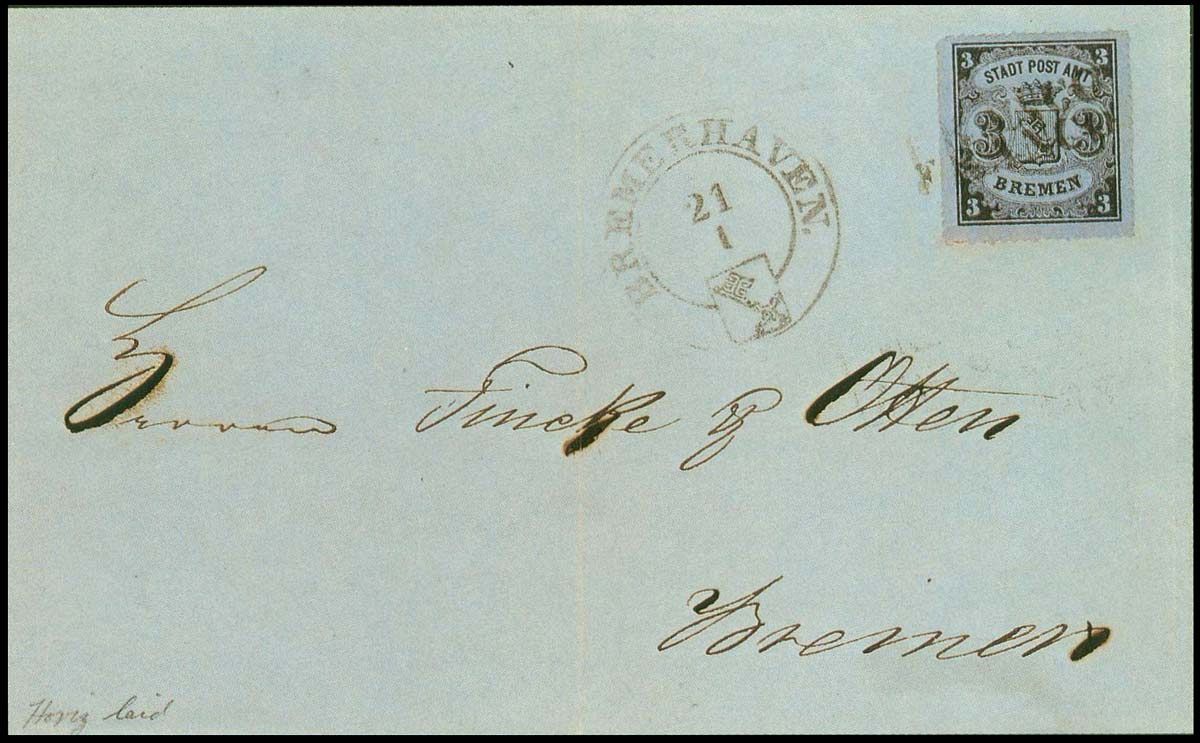 3 3
STADT POST AMT
3 3
BREMEN
3 3
BREMERHAVEN.
21
1
Herren Fincke & Otten
Bremen
Horiz laid